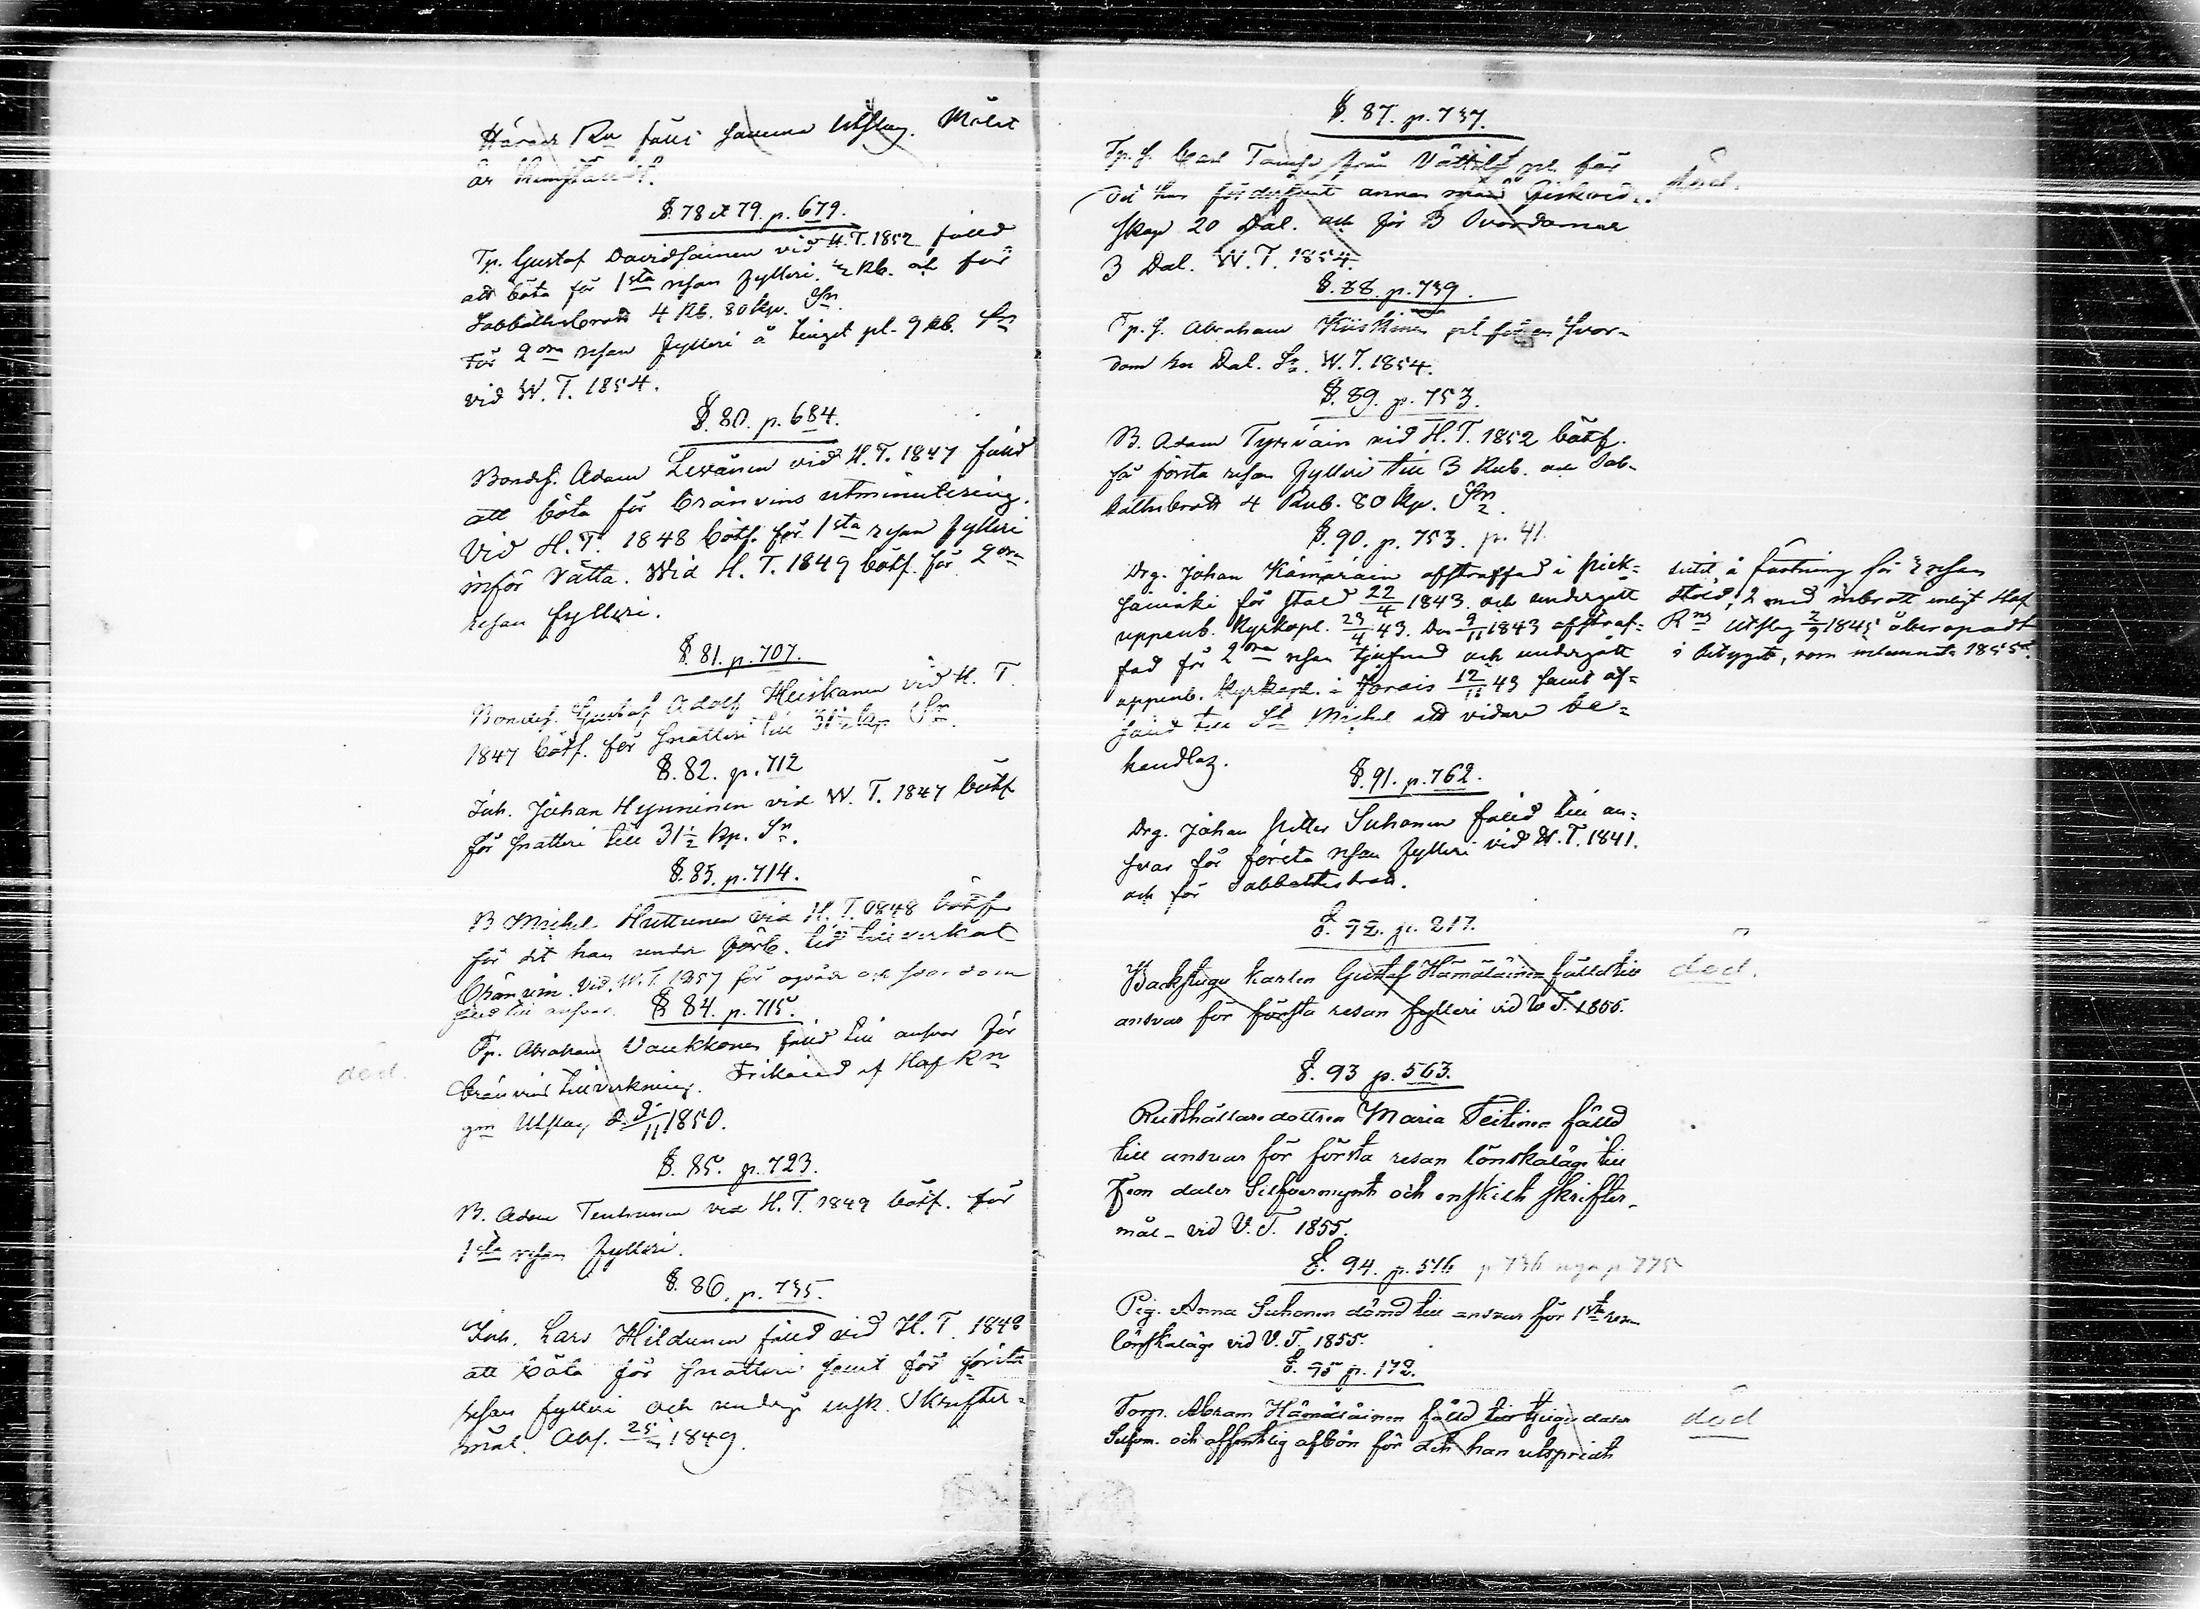 Härads Rn fällt samma Utslag. Målet
är
§. 78 et 79. p. 679.
Tp. Gustaf Davidsainen vid H.T. 1852 fälld
att böta för 1sta resan fylleri. ½ Rb. och för
Sabbathsbrott 4 Rb. 80 kop. Sr.
För 2dra resan fylleri å tinget pl. 9 Rb. Sr
vid W. T. 1854.
§. 80. p. 684.
Bondes. Adam Levänen vid H.T. 1847 fälld
att böta för bränvins utminutering.
Vid H.T. 1848 bötf. för 1sta resan fylleri
inför Rätta. Wid H. T. 1849 bötf. för 2dra
resan fylleri.
§. 81. p. 707.
Bondes. Gustaf Adolf Heiskanen vid H. T.
1847 bötf. för snatteri till 31½ kop Sr.
§. 82. p. 712
Inh. Johan Hynninen vid W. T. 1847 bötf
för snatteri till 31½ kop. Sr.
§. 83. p. 714.
B Michel Huttunen vid H. T. 1848 bötf
för det han under förb. tid tillverkat
bränvin. Vid. W. T. 1857 för oqväd. och svordom
fälld till ansvar.
§ 84. p. 715.
Tp. Abraham Vaukkonen fälld till ansvar för
bränvins tillverkning. Frikänd af Hof Rn
gm Utslag d. 9/11 1850.
död.
§. 85. p. 723.
B. Adam Tenhunen vid H. T. 1849 bötf. för
1sta resan fylleri.
§. 86. p. 735.
Inh. Lars Hildunen fälld vid H. T. 1848
att böta för snatteri samt för första
resan fylleri och undergå ensk. Skrifter-
mål. Abs. 25/ 1849.
§. 87. p. 737.
Tp. s. Carl från pl. för
det han annan man Giskevid..
skap 20 Dal. och för 3 Svordomar
3 Dal. W. T. 1854.
död.
§. 88. p. 739.
Tp. s. Abraham Kiiskinen pl. för en Svor-
dom Dal. Sr. W. T. 1854.
§. 89. p. 753.
B. Adam Tyrväin vid H. T. 1852 bötf.
för första resan fylleri till 3 Rub. och Sab-
bathsbrott 4 Rub. 80 kop. Sr.
§. 90. p. 753. p. 41.
Drg. Johan Kämäräin afstraffad i Pieks=
ämäki för stöld 22/4 1843 och undergått
uppenb. Kyrkopl. 23/4 43. Den 9/11 1843 afstraf=
fad för 2dra resan tjufnad och undergått
uppenb. Kyrkopl. i Jorois 12/11 43 samt af=
sänd till St Michel att vidare be=
handlas.
sutit å fästning för 3 resan
stöld, med inbrott enligt Hof
Rns Utslag 2/9 1845 åberopadt
i betyget, som inlemnats 1855.
§. 91. p. 762.
Drg. Johan Petter Suhonen fälld till an=
svar för första resan fylleri vid H. T. 1841.
och för Sabbathsbrott.
§. 92. p. 217.
Backstugu karlen Gustaf Hämäläinen fälld till
ansvar för första resan fylleri vid W T. 1855.
död.
§. 93 p. 563.
Rusthållare dottren Maria Teitinen fälld
till ansvar för första resan lönskaläge till
Fem daler Silfvermynt och enskilt skrifter-
mål - vid V. T. 1855.
§. 94. p. 576 p 736 nya p 775
Pig. Anna Suhonen dömd till ansvar för 1sta resan
lönskaläge vid V. T. 1855.
§. 95 p. 172.
Torp. Abram Hämäläinen fälld till tjugu daler
Silfvm. och offentlig afbön för det han utspridt
död